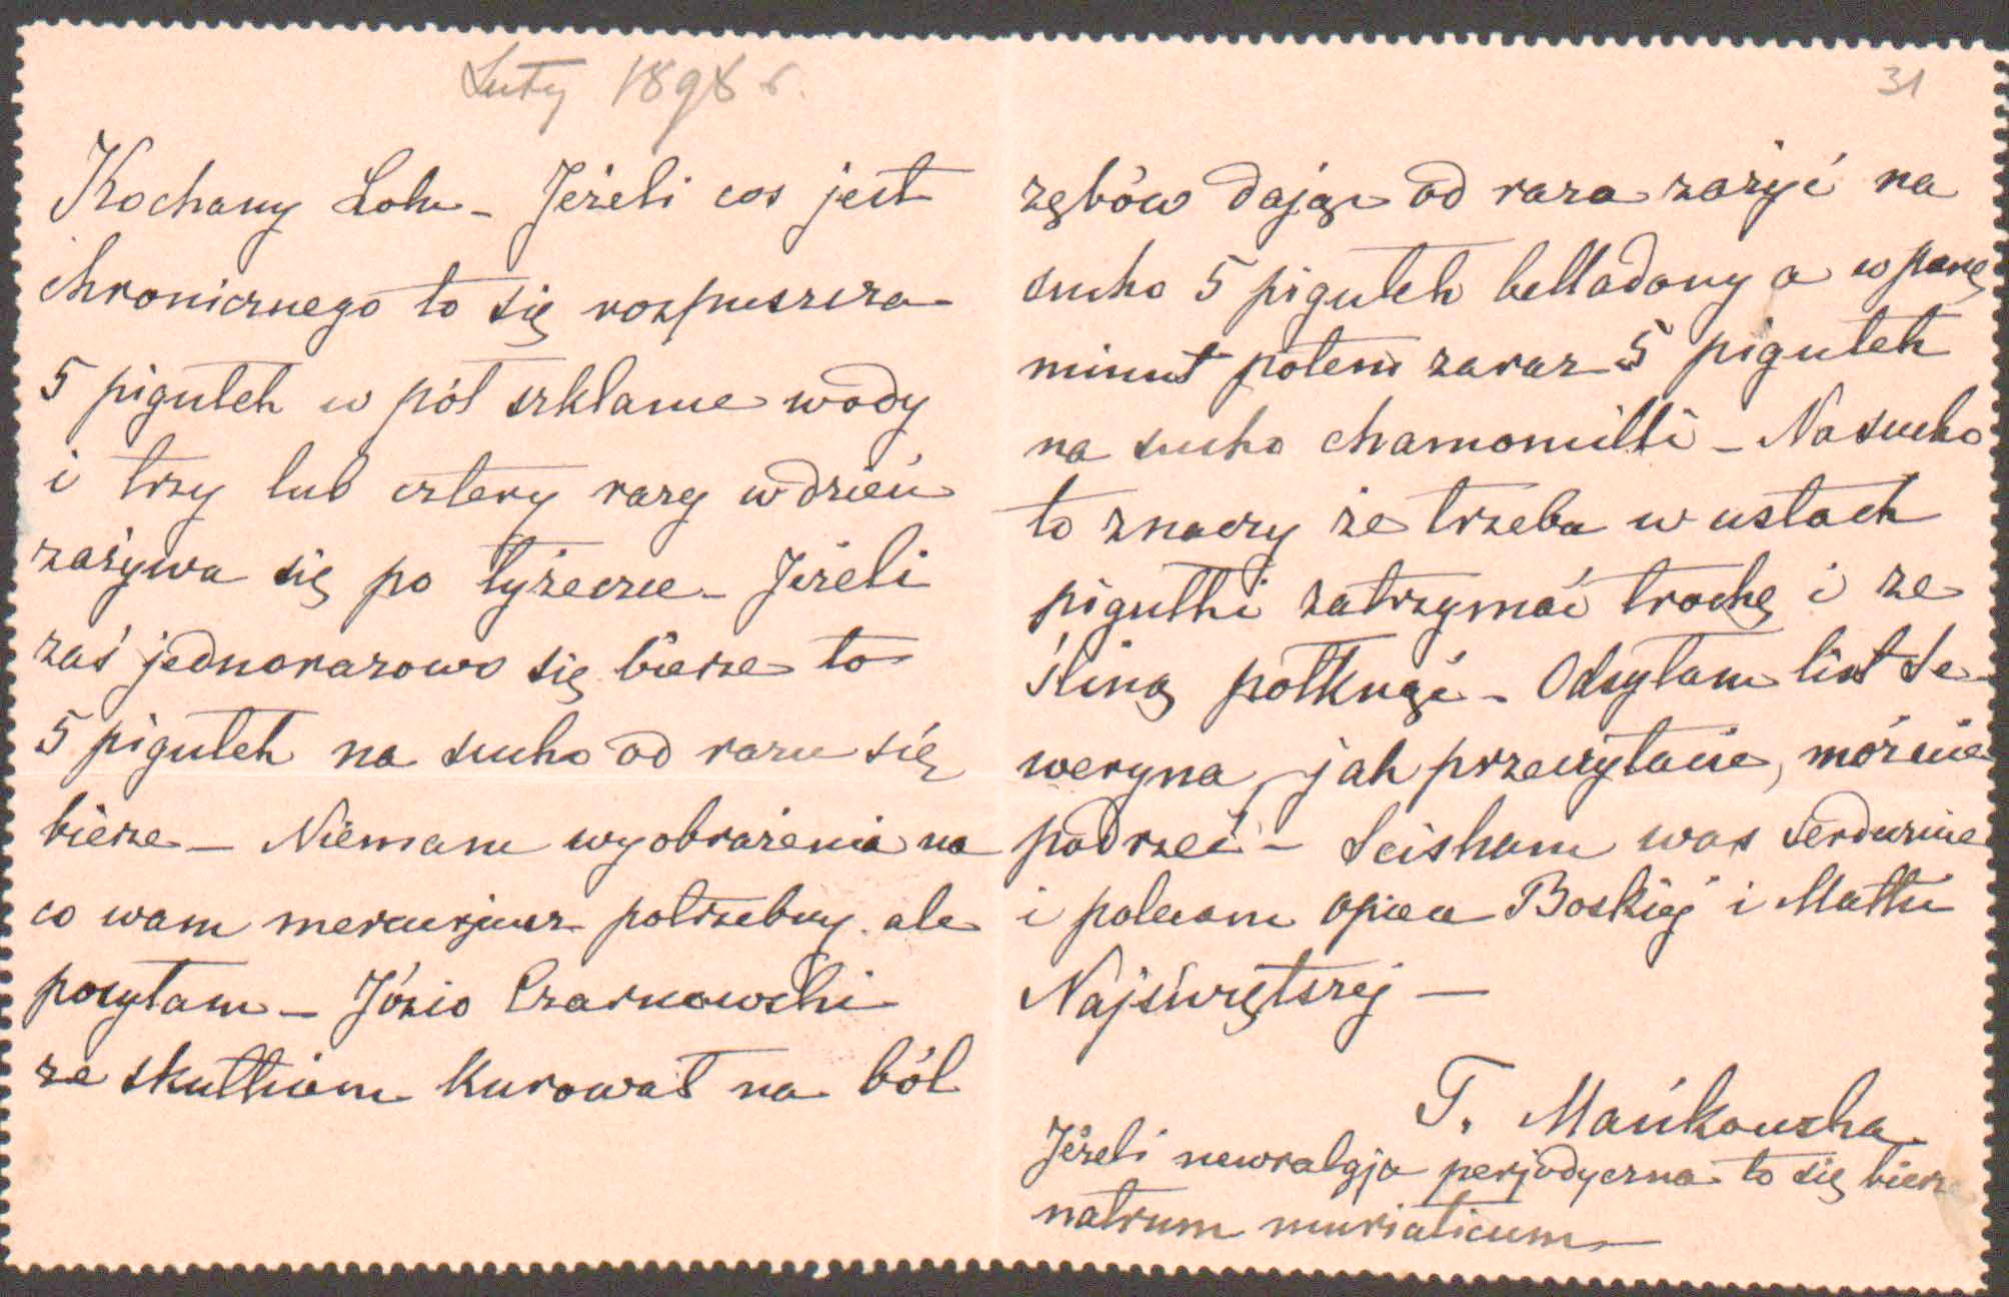 Luty 1898 r.
31
Kochany Lolu – Jeżeli cos jest
chronicznego to się rozpuszcza
5 pigułek w pół szklance wody
i trzy lub cztery razy w dzień
zażywa się po łyżeczce – Jeżeli
zaś jednorazowo się bierze to
5 pigułek na sucho od razu się
bierze – Niemam wyobrażenia na
co wam mercurjusz potrzebny ale
posyłam – Józio Czarnowski
ze skutkiem kurował na ból
zębów dając od raza zażyć na
sucho 5 pigułek belladony a w parę
minut potem zaraz 5 pigułek
na sucho chamomilli – Na sucho
to znaczy że trzeba w ustach
pigułki zatrzymać trochę i ze
śliną połknąć – Odsyłam list Se-
weryna, jak przeczytacie, możecie
podrzeć – Sciskam was serdecznie
i polecam opiece Boskiéj i Matki
Najświętszéj –
T. Mańkowska
Jeżeli newralgja perjodyczna to się bierze
natrum muriaticum –